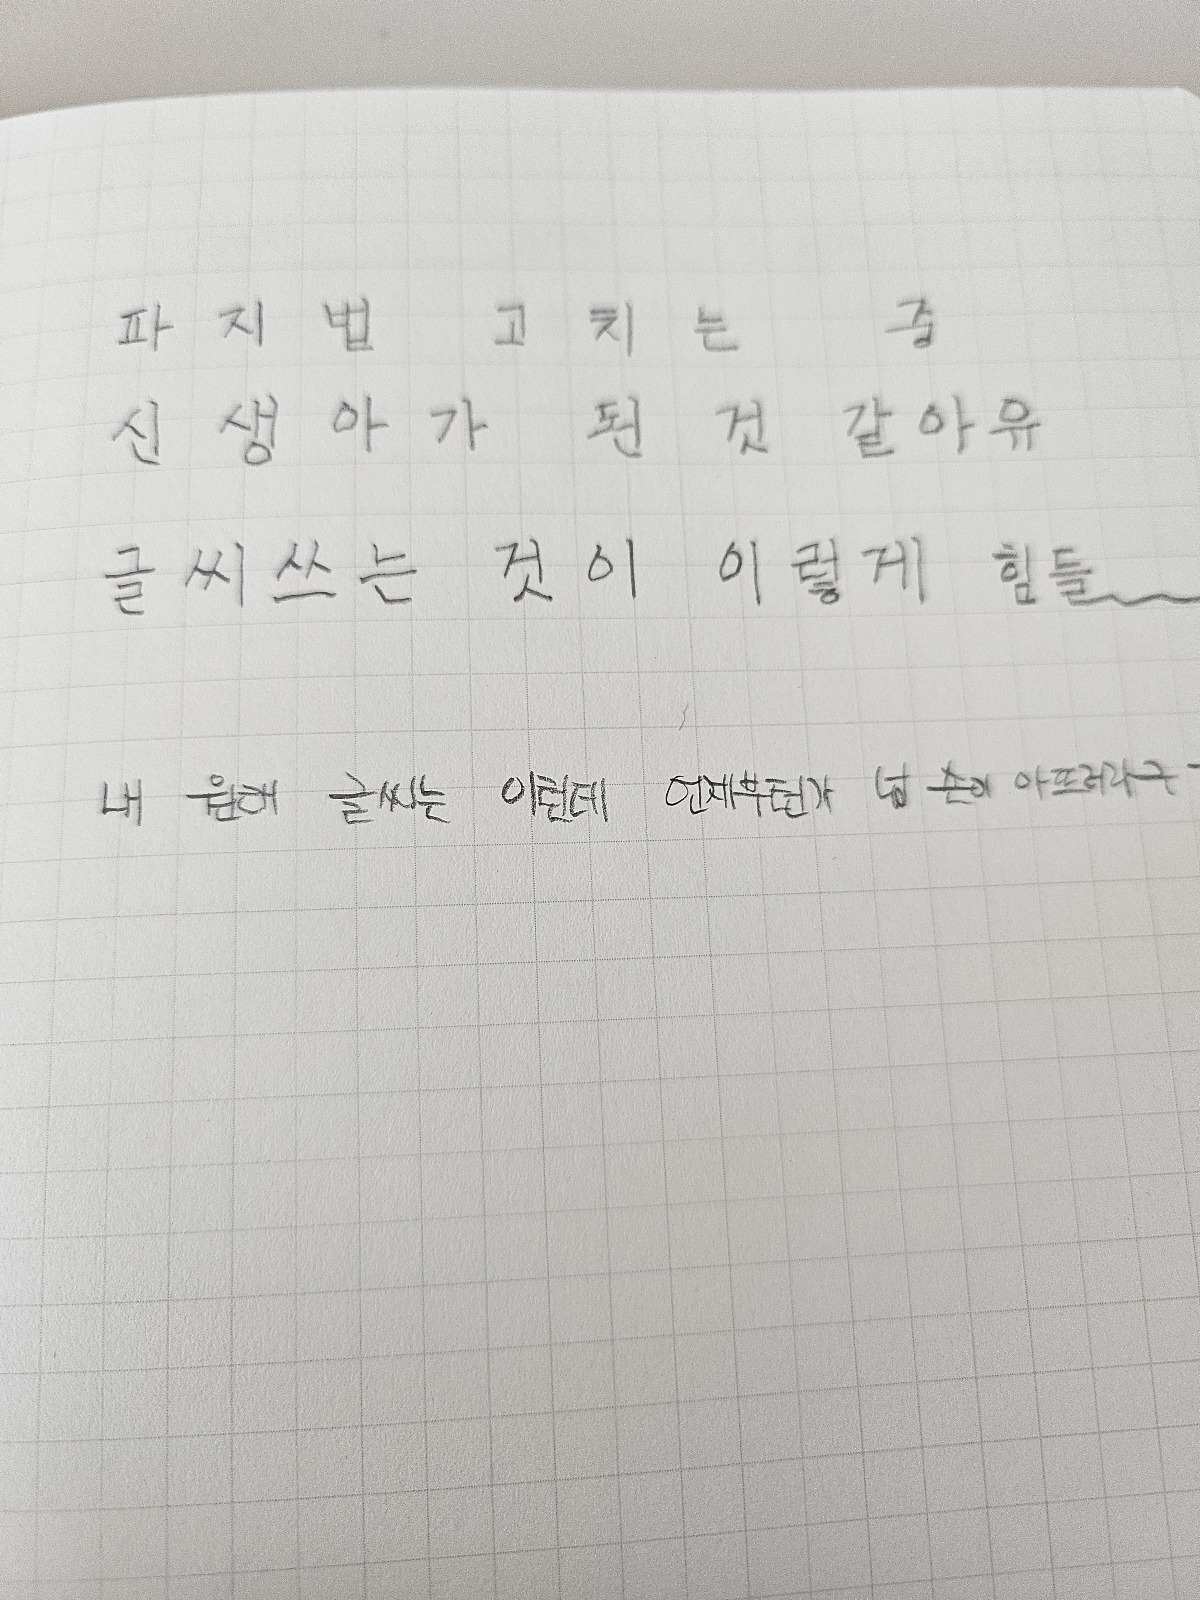 파지법 고치는 중
신생아가 된 것 같아유
글씨쓰는 것이 이렇게 힘들
내 원해 글씨는 이런데 언제부턴가 넘 손이 아프더라구